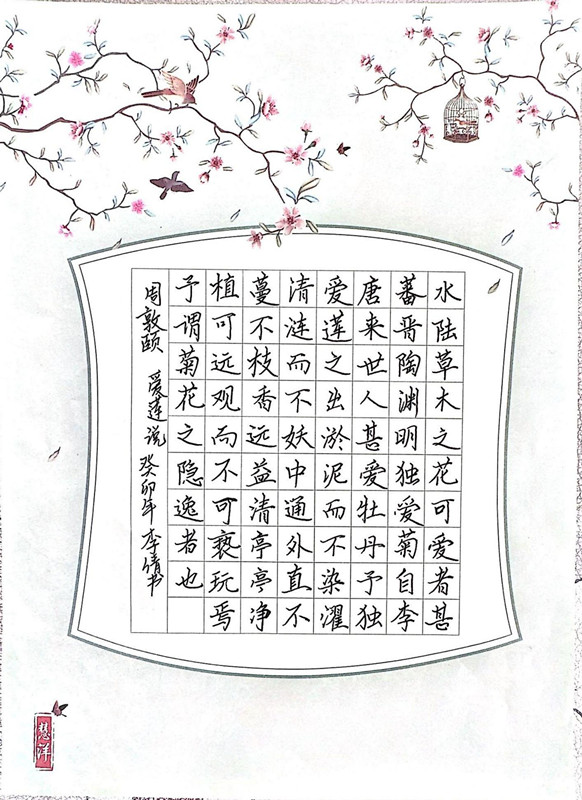 水陆草木之花可爱者甚
蕃晋陶渊明独爱菊自李
唐来世人甚爱牡丹予独
爱莲之出淤泥而不染濯
清涟而不妖中通外直不
蔓不枝香远益清亭亭净
植可远观而不可亵玩焉
予谓菊花之隐逸者也
周敦颐 爱莲说 癸卯年 李倩书
慧洋